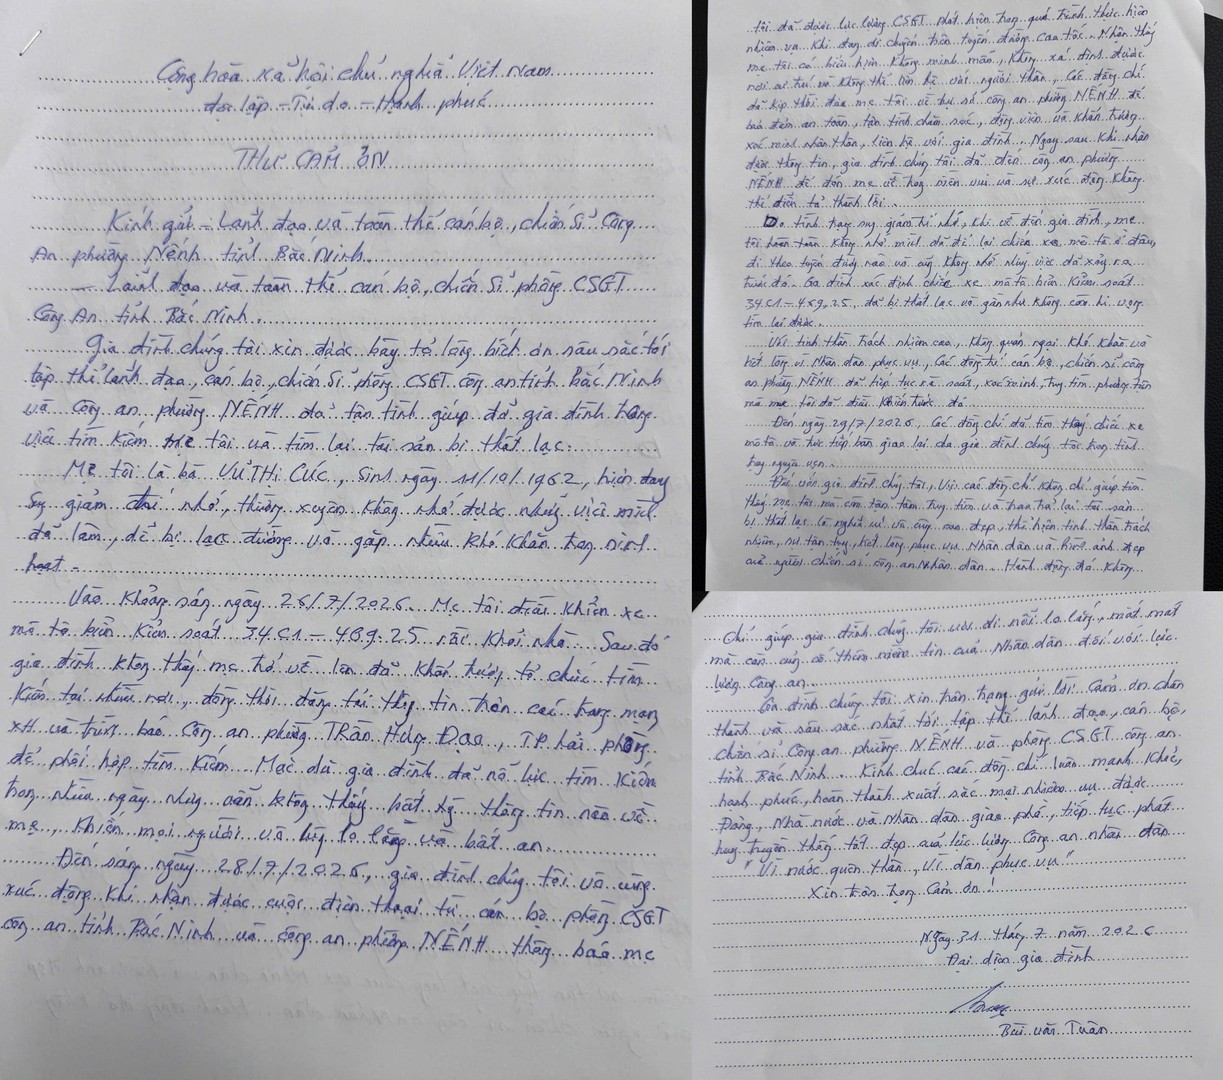 Cộng hòa xã hội chủ nghĩa Việt Nam
độc lập - Tự do - Hạnh phúc
THƯ CẢM ƠN
Kính gửi - Lãnh đạo và toàn thể cán bộ, chiến sĩ Công
An phường Nếnh tỉnh Bắc Ninh.
- Lãnh đạo và toàn thể cán bộ, chiến sĩ phòng CSGT
Công An tỉnh Bắc Ninh.
Gia đình chúng tôi xin được bày tỏ lòng biết ơn sâu sắc tới
tập thể lãnh đạo, cán bộ, chiến sĩ phòng CSGT công an tỉnh Bắc Ninh
và Công an phường NẾNH đã tận tình giúp đỡ gia đình trong
việc tìm kiếm mẹ tôi và tìm lại tài sản bị thất lạc.
Mẹ tôi là bà VŨ THỊ CÚC, Sinh ngày 11/10/1962, hiện đang
suy giảm trí nhớ, thường xuyên không nhớ được những việc mình
đã làm, dễ bị lạc đường và gặp nhiều khó khăn trong sinh
hoạt.
Vào khoảng sáng ngày 26/7/2026. Mẹ tôi điều khiển xe
mô tô biển kiểm soát 34C1-469.25 rời khỏi nhà. Sau đó
gia đình không thấy mẹ trở về lên đã khẩn trương tổ chức tìm
kiếm tại nhiều nơi, đồng thời đăng tải thông tin trên các trang mạng
XH và trình báo Công an phường TRần Hưng Đạo, TP. hải phòng
để phối hợp tìm kiếm. Mặc dù gia đình đã nỗ lực tìm kiếm
trong nhiều ngày nhưng vẫn không thấy bất kỳ thông tin nào về
mẹ, khiến mọi người vô cùng lo lắng và bất an.
Đến sáng ngày 28/7/2026, gia đình chúng tôi vô cùng
xúc động khi nhận được cuộc điện thoại từ cán bộ phòng CSGT
công an tỉnh Bắc Ninh và công an phường NẾNH thông báo mẹ
tôi đã được lực lượng CSGT phát hiện trong quá trình thực hiện
nhiệm vụ khi đang di chuyển trên tuyến đường cao tốc. Nhận thấy
mẹ tôi có biểu hiện không minh mẫn, không xác định được
nơi cư trú và không thể liên hệ với người thân, Các đồng chí
đã kịp thời đưa mẹ tôi về trụ sở công an phường NẾNH để
bảo đảm an toàn, tận tình chăm sóc, động viên và khẩn trương
xác minh nhân thân, liên hệ với gia đình. Ngay sau khi nhận
được thông tin, gia đình chúng tôi đã đến công an phường
NẾNH để đón mẹ về trong niềm vui và sự xúc động không
thể diễn tả thành lời.
Do tình trạng suy giảm trí nhớ, khi về đến gia đình, mẹ
tôi hoàn toàn không nhớ mình đã để lại chiếc xe mô tô ở đâu,
đi theo tuyến đường nào và cũng không nhớ những việc đã xảy ra
trước đó. Gia đình xác định chiếc xe mô tô biển kiểm soát
34C1-469.25 đã bị thất lạc và gần như không còn hi vọng
tìm lại được.
Với tinh thần trách nhiệm cao, không quản ngại khó khăn và
hết lòng vì Nhân dân phục vụ, Các đồng chí cán bộ, chiến sĩ công
an phường NẾNH đã tiếp tục rà soát, xác minh, truy tìm phương tiện
mà mẹ tôi đã điều khiển trước đó.
Đến ngày 29/7/2026, Các đồng chí đã tìm thấy chiếc xe
mô tô và trực tiếp bàn giao lại cho gia đình chúng tôi trong tình
trạng nguyên vẹn.
Đối với gia đình chúng tôi, việc các đồng chí không chỉ giúp tìm
thấy mẹ tôi mà còn tận tâm truy tìm và trao trả lại tài sản
bị thất lạc là nghĩa cử vô cùng cao đẹp, thể hiện tinh thần trách
nhiệm, sự tận tụy, hết lòng phục vụ Nhân dân và hình ảnh đẹp
của người chiến sĩ công an Nhân dân. Hành động đó không
chỉ giúp gia đình chúng tôi vơi đi nỗi lo lắng, mất mát
mà còn củng cố thêm niềm tin của Nhân dân đối với lực
lượng Công an.
Gia đình chúng tôi xin trân trọng gửi lời cảm ơn chân
thành và sâu sắc nhất tới tập thể lãnh đạo, cán bộ,
chiến sĩ Công an phường NẾNH và phòng CSGT công an
tỉnh Bắc Ninh. Kính chúc các đồng chí luôn mạnh khỏe,
hạnh phúc, hoàn thành xuất sắc mọi nhiệm vụ được
Đảng, Nhà nước và Nhân dân giao phó, tiếp tục phát
huy truyền thống tốt đẹp của lực lượng Công an nhân dân
"Vì nước quên thân, Vì dân phục vụ"
Xin trân trọng Cảm ơn!
Ngày 31 tháng 7 năm 2026
Đại diện gia đình
Bùi văn Tuân